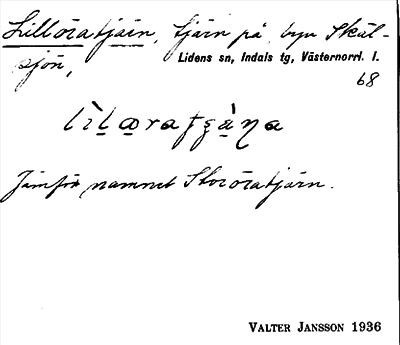 Lilloratjärn, tjärn på byn Skäl-
sjön,
Lidens sn, Indals tg, Västernorrl. l.
68
Jämför namnet Stororatjärn.
VALTER JANSSON 1936